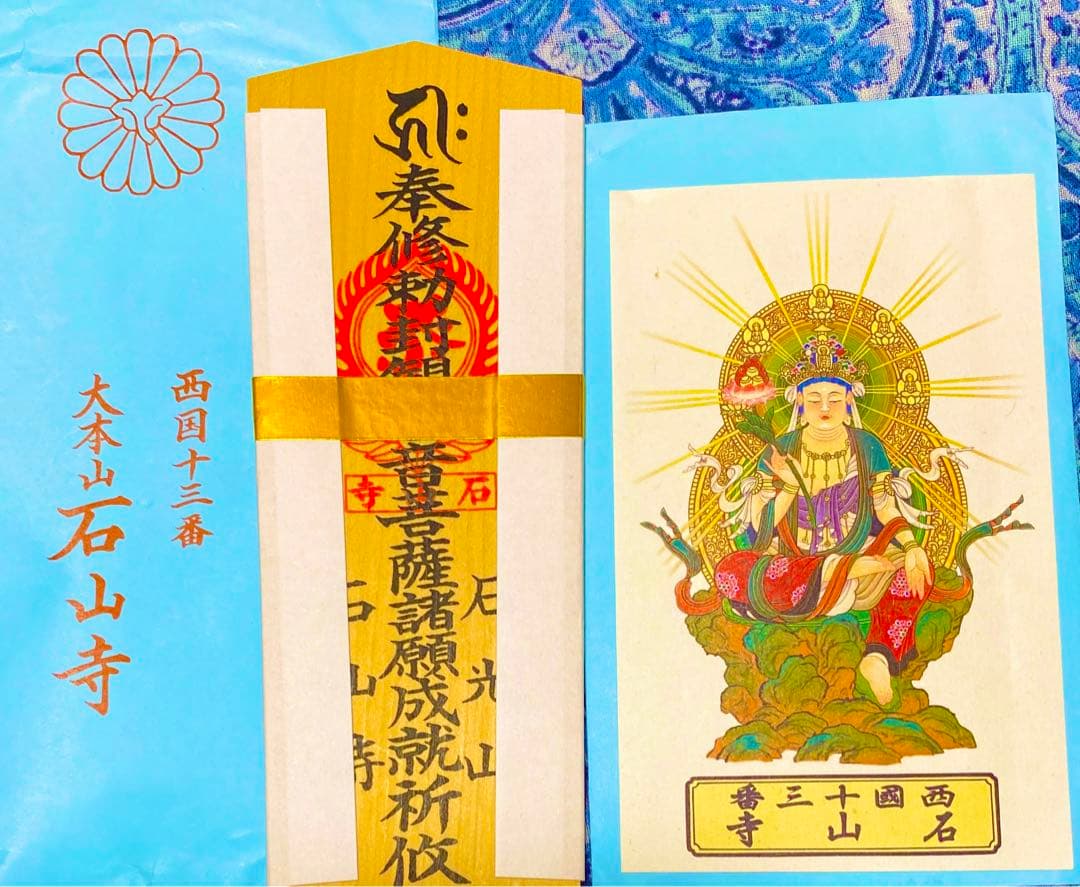 西国十三番
大本山石山寺
𑖮𑖿𑖨𑖱𑖾
奉修勅封觀音菩薩諸願成就祈攸
石光山
石山寺
石山寺
西國十三番
石山寺